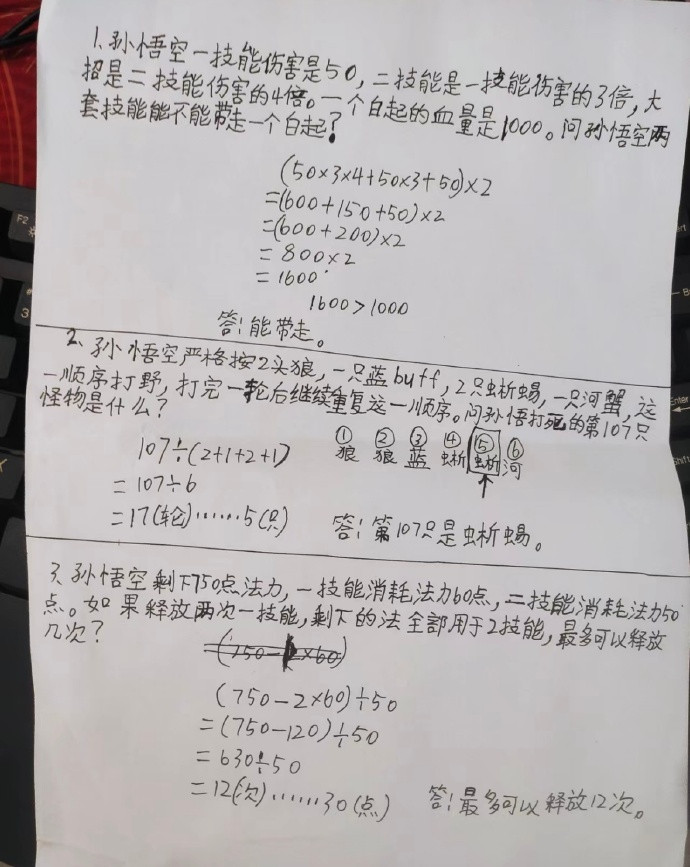 1、孙悟空一技能伤害是50，二技能是一技能伤害的3倍，大
招是二技能伤害的4倍。一个白起的血量是1000。问孙悟空两
套技能能不能带走一个白起？
(50×3×4+50×3+50)×2
=(600+150+50)×2
=(600+200)×2
=800×2
=1600
1600>1000
答：能带走。
2、孙悟空严格按2头狼，一只蓝buff，2只虫析蜴，一只河蟹，这
一顺序打野，打完一轮后继续重复这一顺序。问孙悟打死的第107只
怪物是什么？
107÷(2+1+2+1)
=107÷6
=17(轮)……5(只)
① ② ③ ④ ⑤ ⑥
狼 狼 蓝 蜥 蜥 河
答：第107只是虫析蜴。
3、孙悟空剩下750点法力，一技能消耗法力60点，二技能消耗法力50
点。如果释放两次一技能，剩下的法全部用于2技能，最多可以释放
几次？
(750-2×60)÷50
=(750-120)÷50
=630÷50
=12(次)……30(点)
答：最多可以释放12次。